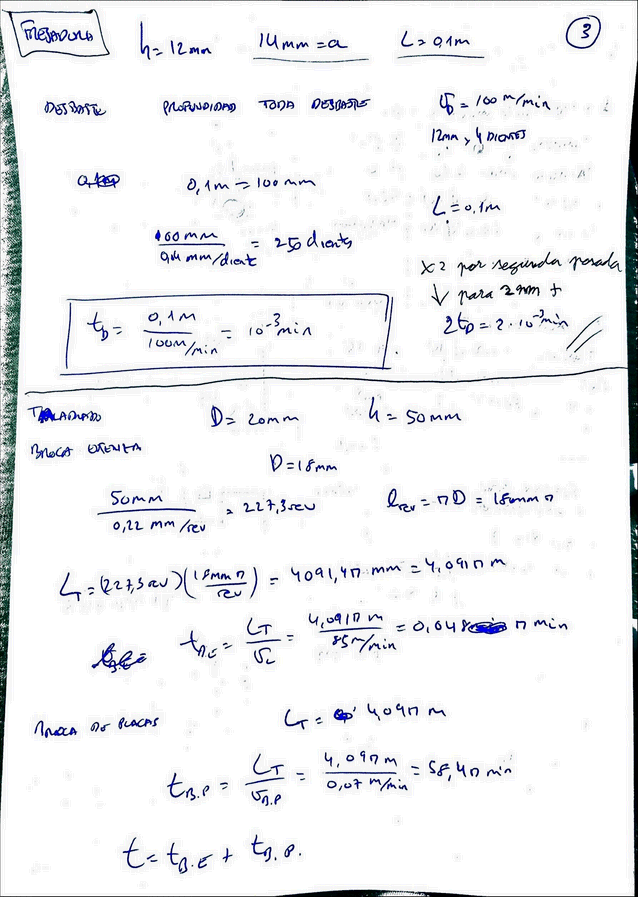 FRESADURA h = 12 mm 14 mm = a L = 0,1m 3
DESBASTE PROFUNDIDAD TODA DESBASTE
= 100 m/min
12mm, 4 DIENTES
0,1m = 100 mm
L = 0,1m
100 mm / 0,4 mm/dient = 250 dients
x2 por segunda pasada
↓ para 2 mm +
2t_D = 2 · 10⁻³ min
t_D = 0,1m / 100m/min = 10⁻³ min
TALADRADO D = 20mm h = 50mm
BROCA
D = 18mm
50mm / 0,22 mm/rev = 227,3 rev l_rev = π D = 18mm π
L_T = (227,3 rev) (18mm π / rev) = 4091,4π mm = 4,091π m
t_B.E = L_T / v_c = 4,091π m / 85m/min = 0,048 π min
BROCA DE PLACAS L_T = 4,09π m
t_B.P = L_T / v_B.P = 4,09π m / 0,07 m/min = 58,4π min
t = t_B.E + t_B.P.